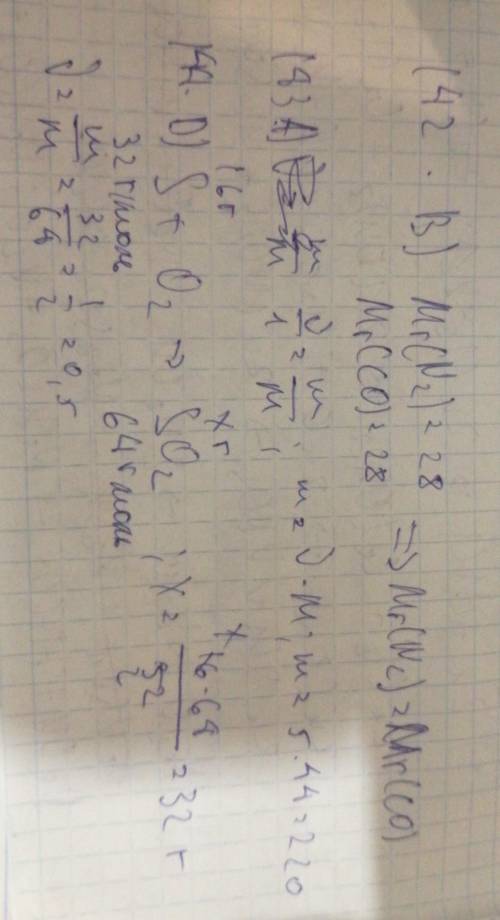 142. В) Mr(N₂) = 28 => Mr(N₂) = Mr(CO)
Mr(CO) = 28
143 A) ν/1 = m/M ; m = ν · M ; m = 5 · 44 = 220
16г хг
144. D) S + O₂ → SO₂ ; x = 16·64/32 = 32 г
32 г/моль 64 г/моль
ν = m/M = 32/64 = 1/2 = 0,5